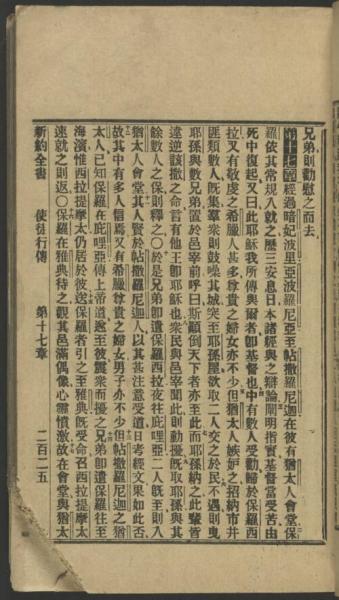 兄弟則勸慰之而去
第十七章 經過暗妃波里亞波羅尼亞至帖撒羅尼迦在彼有猶太人會堂保
羅依其常規入就之歷三安息日本諸經與之辯論闡明指實基督當受苦由
死中復起又曰此耶穌我所傳與爾者卽基督也中有數人受勸歸於保羅西
拉又有敬虔之希臘人甚多尊貴之婦女亦不少但猶太人嫉妒之招納市井
匪類數人旣集羣衆則鼓噪其城突至耶孫屋欲取二人交之於民不遇則曳
耶孫與數兄弟置於邑宰前呼曰斯顚倒天下者亦至此而耶孫納之此輩皆
違逆該撒之命言有他王卽耶穌也衆民與邑宰聞此則動擾旣取耶孫與其
餘數人之保則釋之〇於是兄弟卽遣保羅西拉夜往庇哩亞二人旣至則入
猶太人會堂其人賢於帖撒羅尼迦人以其甚注意受道日考經文果如此否
故其中有多人信焉又有希臘尊貴之婦女男子亦不少但帖撒羅尼迦之猶
太人已知保羅在庇哩亞傳上帝道遂至彼震衆而擾之兄弟卽遣保羅往至
海濱惟西拉提摩太仍居於彼送保羅者引之至雅典旣受命召西拉提摩太
速就之則返〇保羅在雅典待之觀其邑滿偶像心靈憤激故在會堂與猶太
新約全書 使徒行傳 第十七章 二百二五